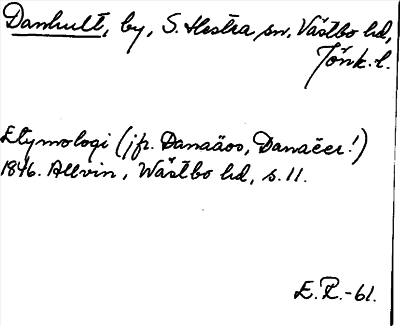 Danhult, by, S. Hestra sn, Västbo hd,
Jönk. l.
Etymologi (jfr. Danaäos, Danaëer!)
1846. Allvin, Wästbo hd, s. 11.
E. P. -61.